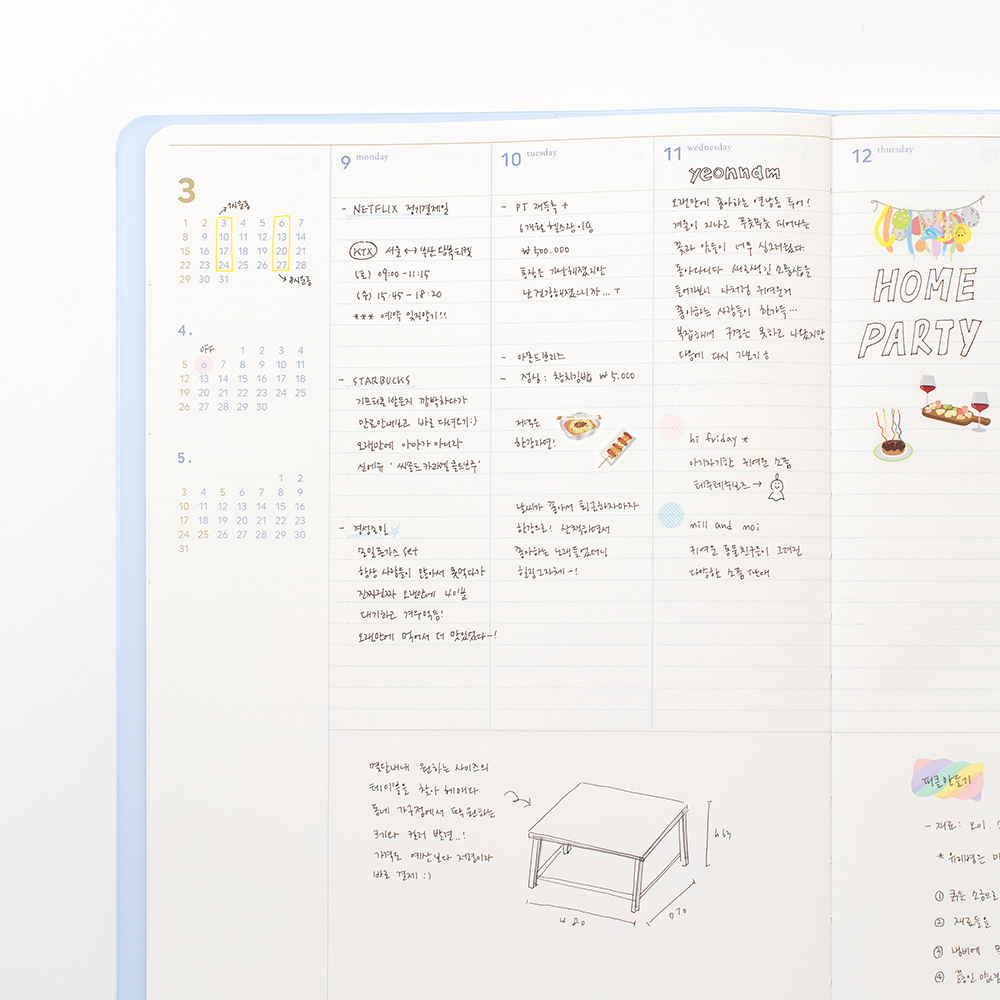 3
7시운동
1 2 3 4 5 6 7
8 9 10 11 12 13 14
15 16 17 18 19 20 21
22 23 24 25 26 27 28
29 30 31
8시운동
4.
OFF
1 2 3 4
5 6 7 8 9 10 11
12 13 14 15 16 17 18
19 20 21 22 23 24 25
26 27 28 29 30
5.
1 2
3 4 5 6 7 8 9
10 11 12 13 14 15 16
17 18 19 20 21 22 23
24 25 26 27 28 29 30
31
9 monday
- NETFLIX 정기결제일
KTX 서울 ↔ 부산 왕복티켓
(토) 09:00 - 11:15
15:45 - 18:20
*** 예약 잊지말기!!
- STARBUCKS
기프티콘받은지 깜박하다가
만료안내나고 바로 다녀오기:)
오랜만에 아아가 아니라
신메뉴 '씨솔트카라멜콜드브루'
- 경성초인
모밀돈가스 set
항상 사람들이 많아서 못먹다가
진짜진짜 오랜만에 40분
대기하고 겨우먹음!
오랜만에 먹어서 더 맛있었다~!
10 tuesday
- PT 재등록 +
6개월 헬스장 이용
₩500.000
통장은 가난해졌지만
난 건강해졌으니까... T
- 아몬드브리즈
- 점심 : 참치김밥 ₩5,000
저녁은
한강라면!
날씨가 좋아서 퇴근하자마자
한강으로! 산책하면서
좋아하는 노래들었더니
힐링그자체~!
11 wednesday
yeonnam
오랜만에 좋아하는 연남동 투어!
겨울이 지나고 푸릇푸릇 피어나는
꽃과 잎들이 너무 싱그러웠다.
돌아다니다 새로생긴 소품샵을
들어가보니 나처럼 귀여운거
좋아하는 사람들이 한가득...
복잡해서 구경은 못하고 나왔지만
다음에 다시 가보기
hi friday *
아기자기한 귀여운 소품
테루테루보즈 →
mill and moi
귀여운 동물친구들이 그려진
다양한 소품 판매
12 thursday
HOME
PARTY
몇달내내 원하는 사이즈의
테이블을 찾아 헤매다
동네 가구점에서 딱 원하는
크기와 컬러 발견..!
가격도 예산보다 저렴이라
바로 결제 :)
h 63
W 80
D 70
피클만들기
- 재료 : 오이.
* 유리병은
① 굵은 소금으로
② 재료들을
③ 냄비에
④ 끓인